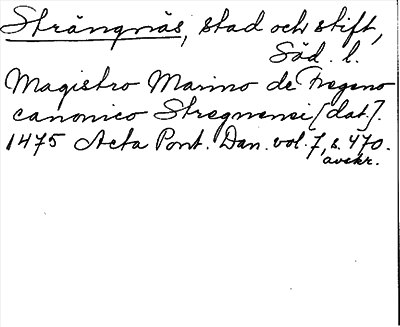 Strängnäs, stad och stift,
Söd. l.
Magistro Marino de Fregeno
canonico Stregnensi [dat].
1475 Acta Pont. Dan. vol. 7, s. 470.
avskr.